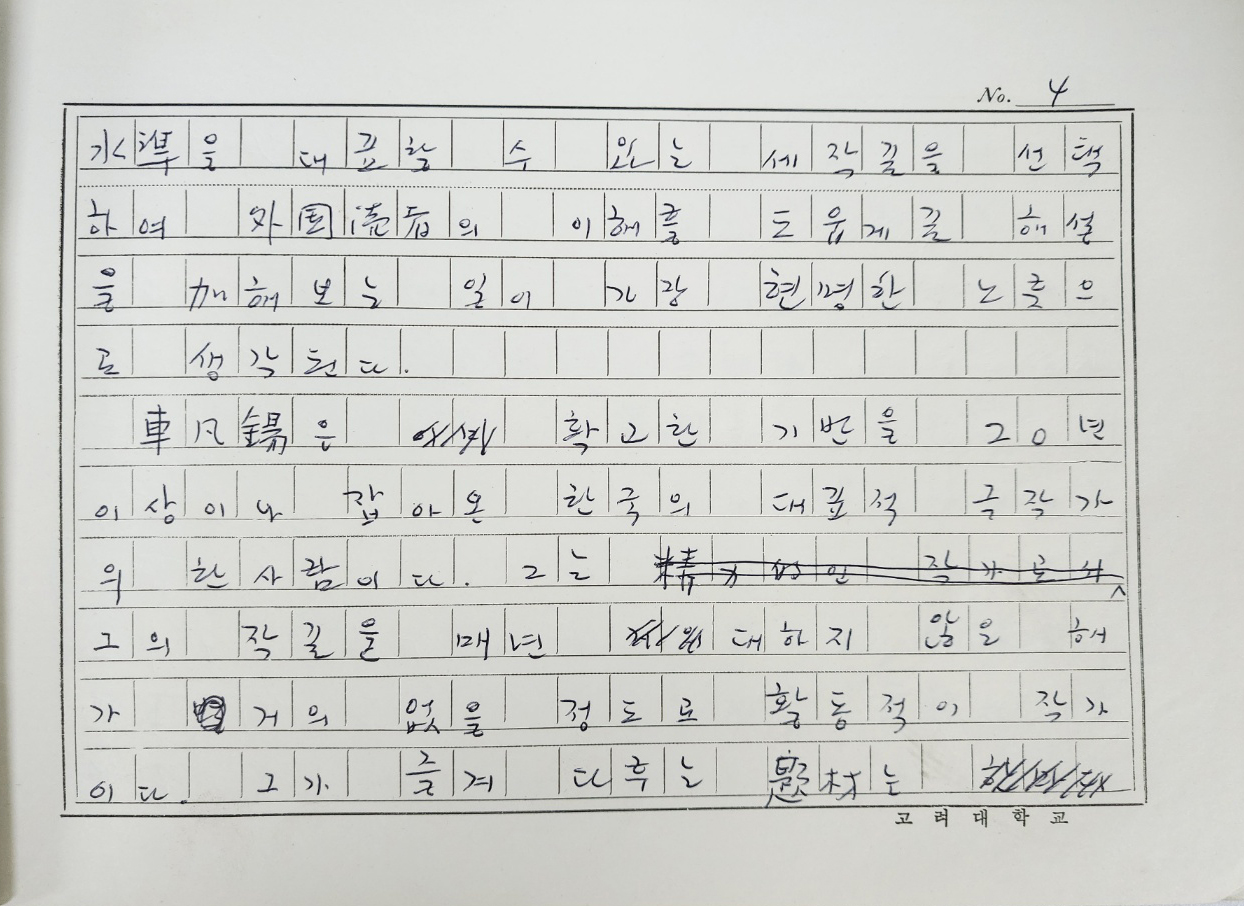 No. 4
水準을 대표할 수 있는 세 작품을 선택
하여 外国読者의 이해를 도웁게끔 해설
을 加해 보는 일이 가장 현명한 노릇으
로 생각된다.
車凡錫은 확고한 기반을 20년
이상이나 잡아온 한국의 대표적 극작가
의 한사람이다. 그는
그의 작품을 매년 대하지 않을 해
가 거의 없을 정도로 활동적이 작가
이다. 그가 즐겨 다루는 題材는
고려대학교